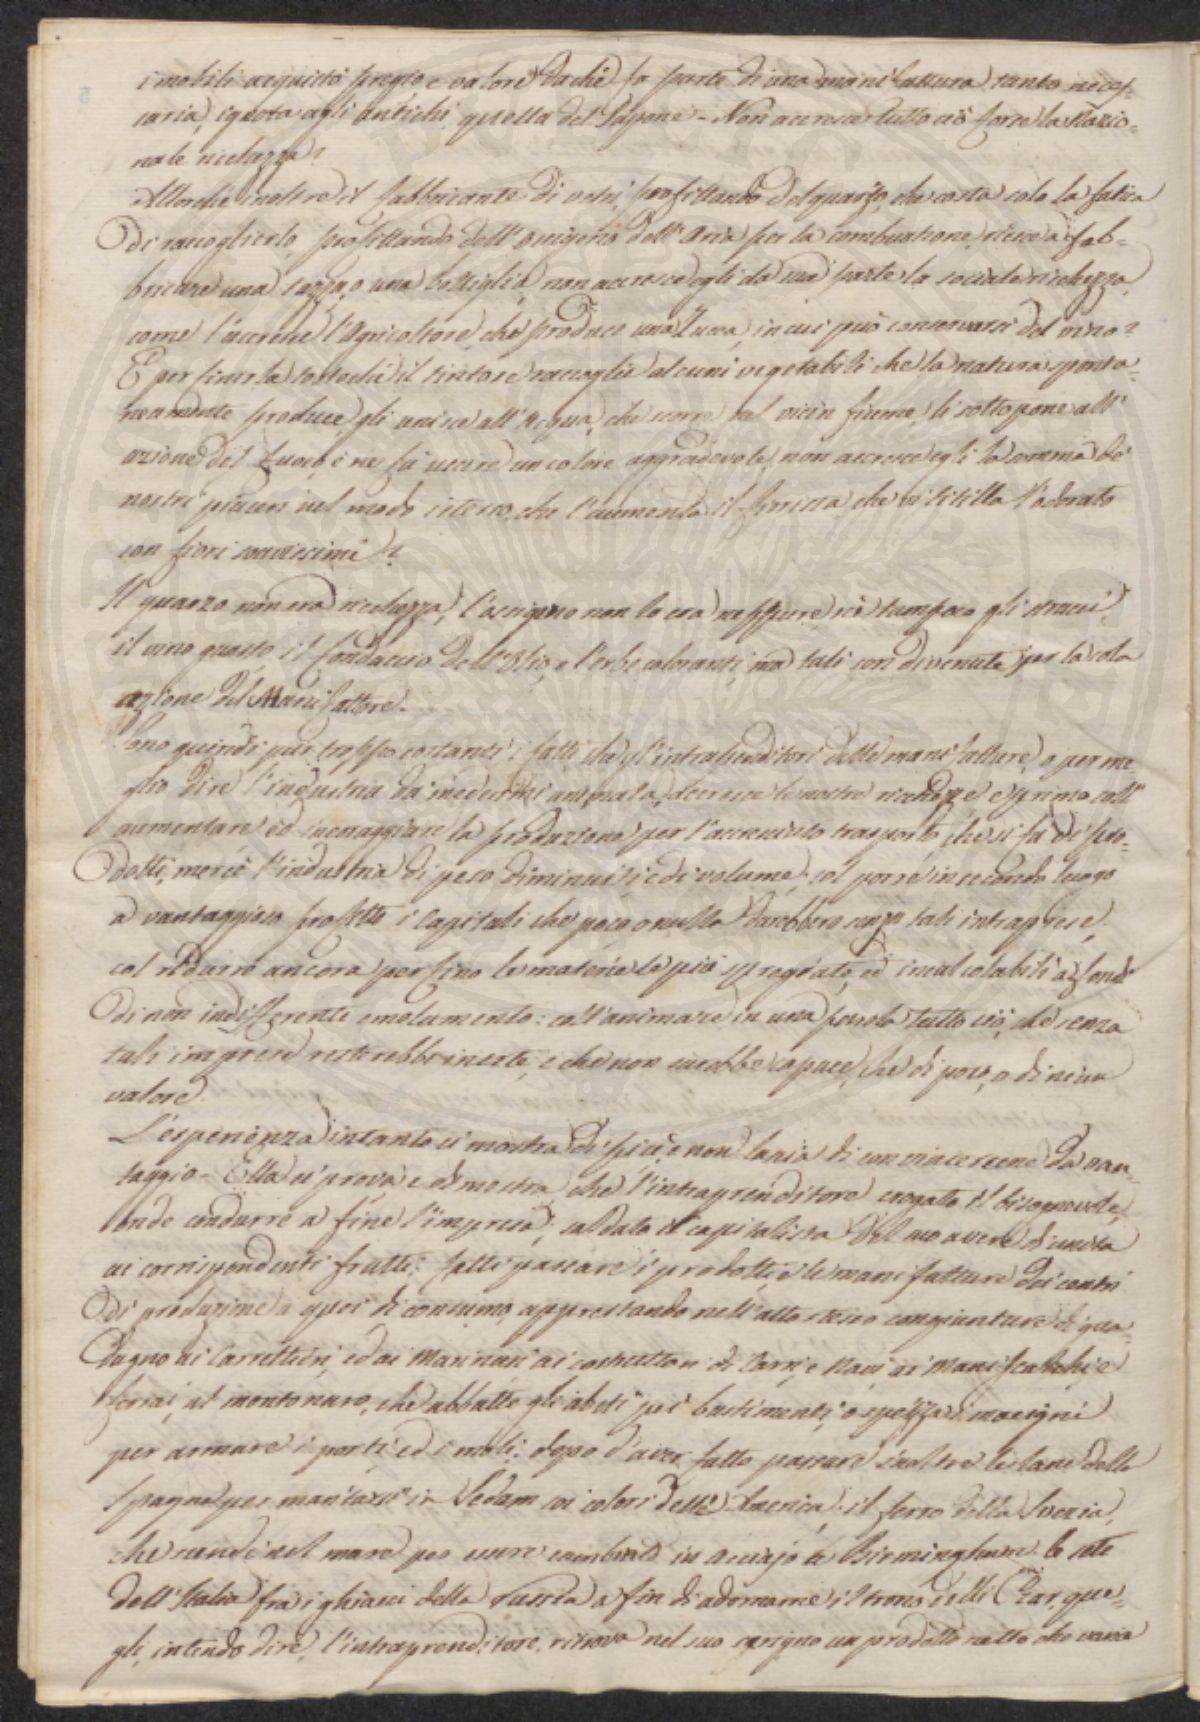 imobili acquistò pregio e valore dachè fa parte di una manifattura tanto neces-
saria, ignota agli antichi, quella del Sapone - Non accresce tutto ciò forse la Nazio-
nale richezza?
Allorchè inoltre il fabbricante di vetri, profittando del quarzo, che costa solo la fatica
di raccoglierlo, profittando dell'ossigeno dell'aria per la combustione, riesce a fab-
bricare una tazza, o una bottiglia, non accresce egli da sua parte la sociale richezza,
come l'accresce l'Agricoltore, che produce una Zucca, in cui può conservarsi del vino?
E per finirla tostochè il tintore raccoglie alcuni vegetabili che la natura sponta-
neamente produce, gli unisce all'Acqua, che scorre nel vicin fiume, li sottopone all'
azione del fuoco, e ne fà uscire un colore aggradevole, non accresce egli la somma de'
nostri piaceri nel modo istesso, che l'aumenta il fiorista, che vi titilla l'odorato
con fiori soavissimi?
Il quarzo non era richezza, l'ossigeno non lo era neppure, nè tampoco gli stracci,
il vino guasto, il fondaccio dell'Olio, e l'erbe coloranti, ma tali son divenute per la sola
azione del Manifattore.
Sono quindi pur troppo costanti i fatti che gl'intraprenditori delle manifatture, o per me-
glio dire l'industria da medesimi animata, accresce le nostre richezze e primo coll'
aumentare ed incoraggiare la produzione per l'accresciuto trasporto, che si fa di pro-
dotti, mercè l'industria di peso diminuiti e di volume; col porre in secondo luogo
a vantaggioso profitto i Capitali che poco o nulla darebbero senza tali intraprese,
col ridurre ancora per fino le materie le più spregiate, ed incalcolabili a fondi
di non indifferente emolumento: coll'animare in una parola tutto ciò, che senza
tali imprese resterebbe inerte, e che non sarebbe capace, che di poco, o di niun
valore.
L'esperienza intanto ci mostra di più, e non lascia di convincercene da van-
taggio - Ella ci prova e dimostra che l'intraprenditore erogato il bisognevole,
onde condurre a fine l'impresa; saldato il capitalista del suo avere di unita
ai corrispondenti frutti; fatti passare i prodotti, e le manifatture dai centri
di produzione a quei di consumo, apprestando nell'atto stesso congiunture di gua-
dagno ai Carrettieri, ed ai Marinari, ai costruttori di Carri, e Navi, ai Maniscalchi e
ferrai, al montonaro, che abbatte gli abeti pei bastimenti, o spezza i macigni
per armare i porti, ed i moli: dopo d'aver fatto passare inoltre le lane della
Spagna per maritarsi in Sedam coi colori dell'America: il ferro della Svezia,
che scende nel mare per essere cambiato in acciajo a Birmingham: le sete
dell'Italia fra i ghiacci della Russia a fin di adornarne il trono delli Czar, que-
gli, intendo dire, l'intraprenditore, ritrova nel suo scrigno un prodotto netto che varia